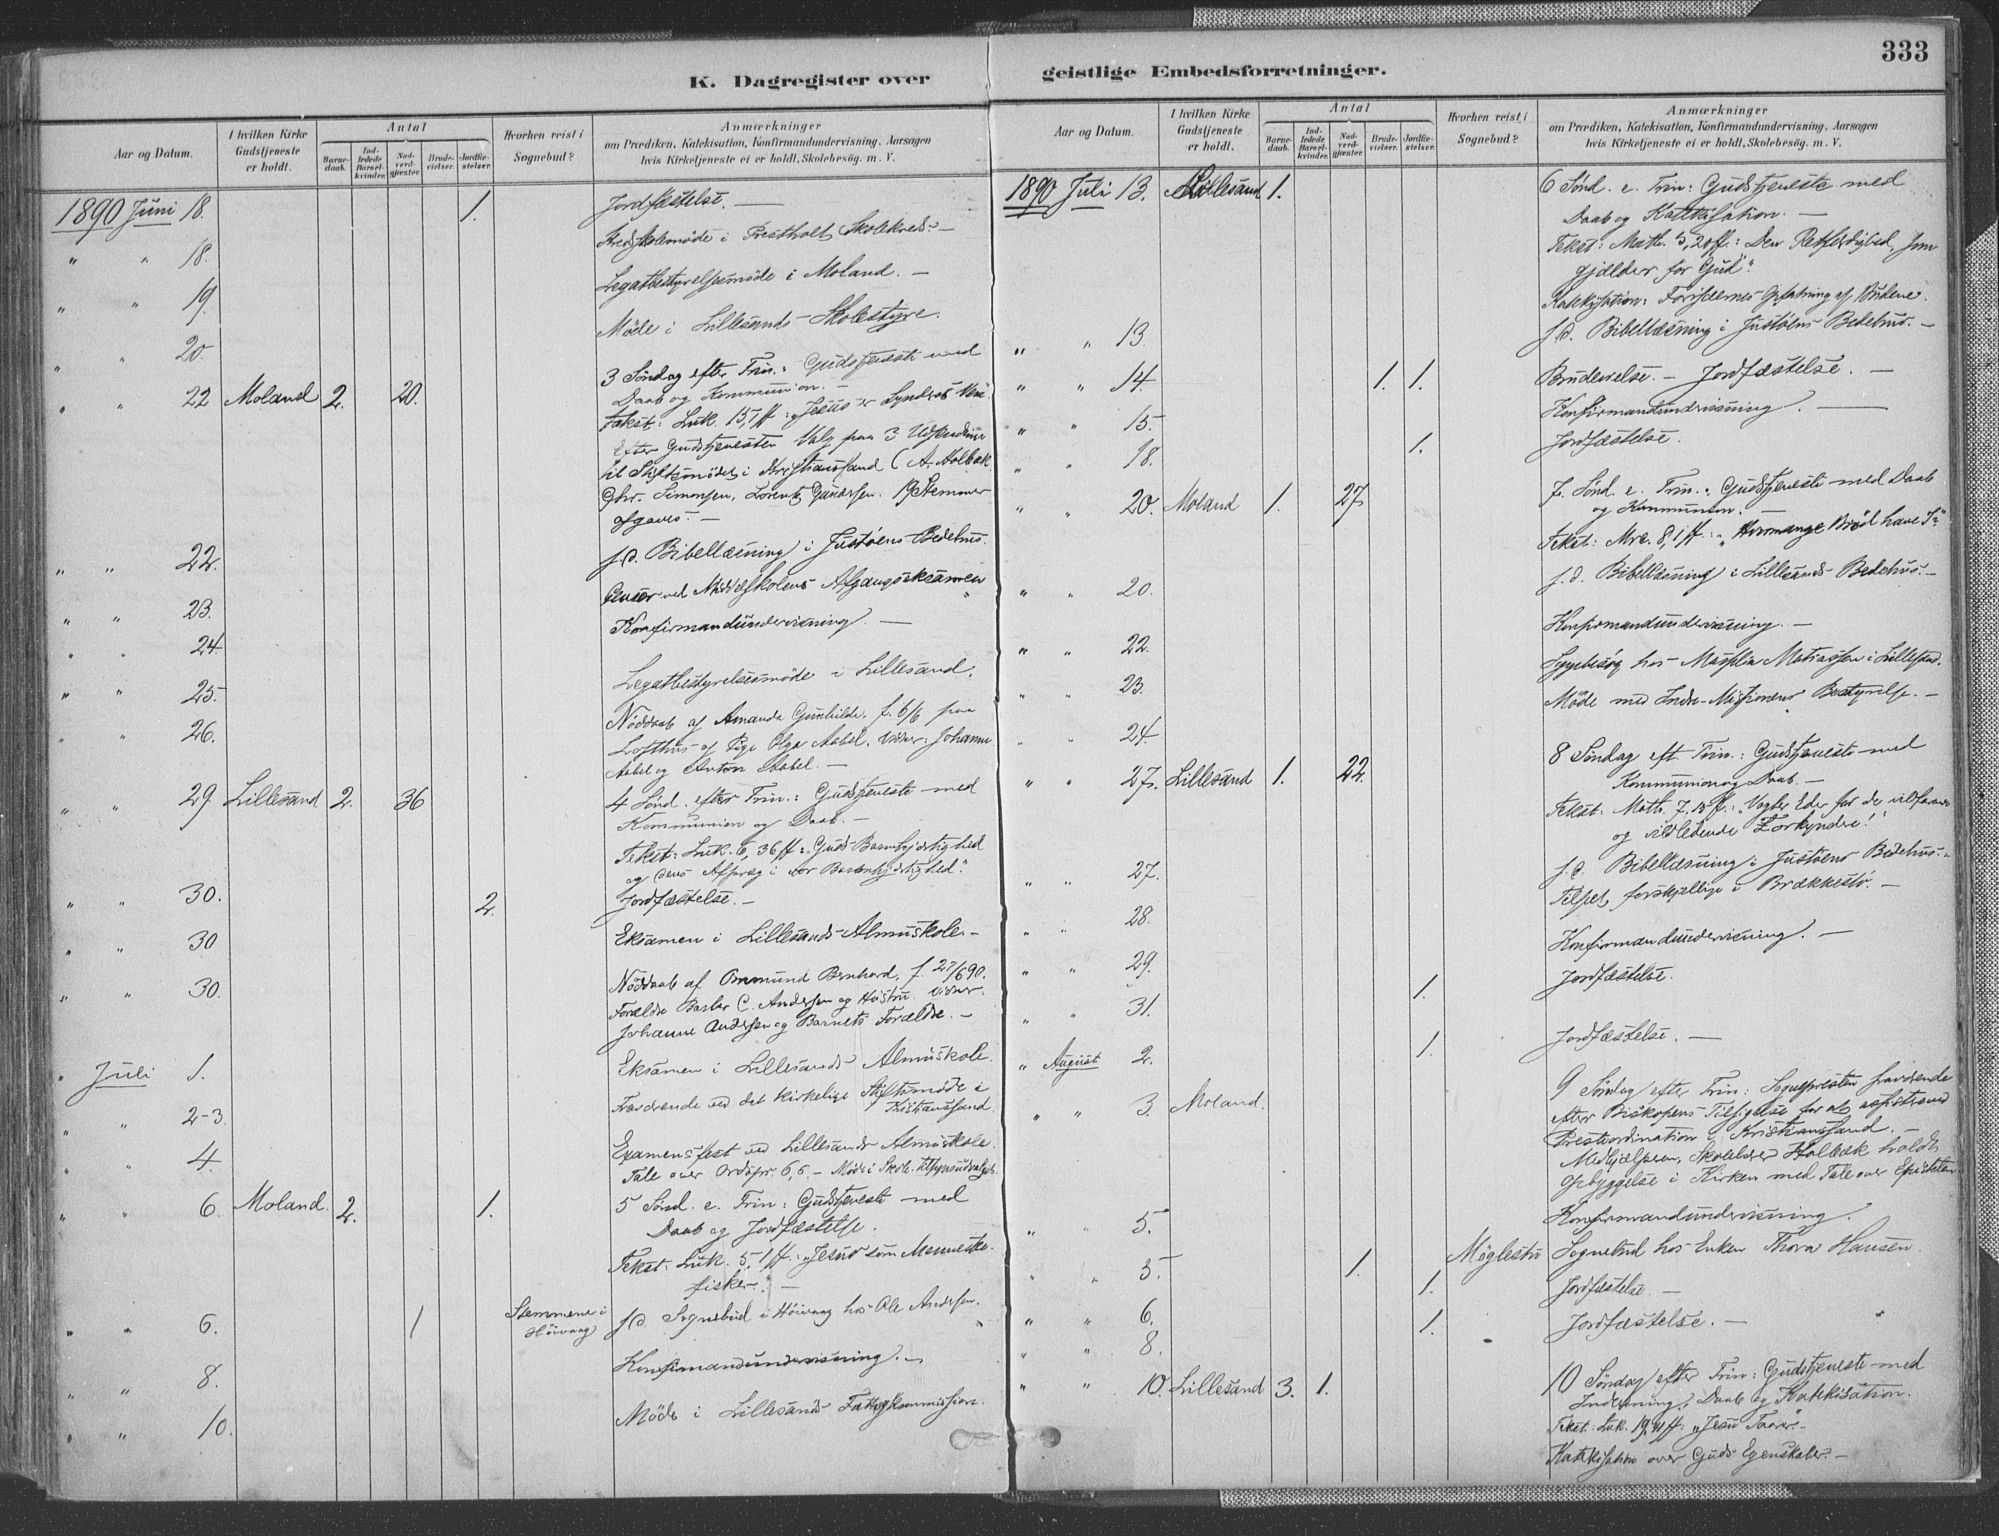 333
K. Dagregister over
Aar og Datum.
I hvilken Kirke Gudstjeneste er holdt.
Antal
Barnedaab.
Indledede Barselkvinder.
Nadverdgjæster.
Brudevielser.
Jordfæstelser.
Hvorhen reist i Sognebud?
Anmærkninger
om Prædiken, Katekisation, Konfirmandundervisning, Aarsagen
hvis Kirketjeneste ei er holdt, Skolebesøg. m. V.
1890 Juni 18. 1. Jordfæstelse. —
" " 18. Kredsskolemøde i Prestholt Skolekreds. —
" " 19. Legatbestyrelsesmøde i Moland. —
" " 20. Møde i Lillesands Skolestyre.
" " 22 Moland 2. 20. 3 Søndag efter Trin.: Gudstjeneste med
Daab og Kommunion. —
Tekst: Luk. 15,1ff: "Jesus er Synderes Ven"
Efter Gudstjenesten Valg paa 3 Udsendinge
til Stiftsmødet i Kristianssand (A. Aalbæk
Chr. Simonsen, Lorentz Gundersen. 19 Stemmer
afgaves. —
" " 22. s. d. Bibellæsning i Justøens Bedehus.
" " 23. Censor ved Middelskolens Afgangseksamen
" " 24. Konfirmandundervisning. —
" " 25. Legatbestyrelsesmøde i Lillesand.
" " 26. Nøddaab af Amanda Gunhilde, f. 6/6 paa
Lofthus af Pige Olga Aabel. Vidner: Johanne
Aabel og Anton Aabel. —
" " 29 Lillesand 2. 36 4 Sønd. efter Trin.: Gudstjeneste med
Kommunion og Daab. —
Tekst: Luk. 6, 36 ff: "Guds Barmhjertighed
og dens Afpræg i vor Barmhjertighed".
" " 30. 2. Jordfæstelse. —
" " 30 Eksamen i Lillesands Almuskole. —
" " 30. Nøddaab af Ommund Bernhard, f. 27/6 90.
Forældre Basler C. Andersen og Hustru. Vidner:
Johanne Andersen og Barnets Forældre. —
" Juli 1. Eksamen i Lillesands Almuskole.
" " 2-3. Fraværende ved det kirkelige Stiftsmøde i
Kristianssand.
" " 4. Examensfest ved Lillesands Almuskole.
Tale over Ordspr. 6,6. — Møde i Skole-Tilsynsudvalget.
" " 6. Moland. 2. 1. 5 Sønd. e. Trin: Gudstjeneste med
Daab og Jordfæstelse.
Tekst: Luk. 5, 1 ff: "Jesus som Menneske-
fisker". —
" " 6. 1 Stemmene i Høivaag s. d. Sognebud i Høivaag hos Ole Andersen.
" " 8. Konfirmandundervisning. —
" " 10. Møde i Lillesands Fattigkommission.
geistlige Embedsforretninger.
Aar og Datum.
I hvilken Kirke Gudstjeneste er holdt.
Antal
Barnedaab.
Indledede Barselkvinder.
Nadverdgjæster.
Brudevielser.
Jordfæstelser.
Hvorhen reist i Sognebud?
Anmærkninger
om Prædiken, Katekisation, Konfirmandundervisning, Aarsagen
hvis Kirketjeneste ei er holdt, Skolebesøg. m. V.
1890 Juli 13. Lillesand 1. 6 Sønd. e. Trin: Gudstjeneste med
Daab og Katekisation. —
Tekst: Math. 5, 20ff.: "Den Retfærdighed, som
gjælder for Gud".
Katekisation: Farisæernes Opfatning af Budene.
" " 13. s. d. Bibellæsning i Justøens Bedehus. —
" " 14. 1. 1. Brudevielse. — Jordfæstelse. —
" " 15. Konfirmandundervisning. —
" " 18. 1. Jordfæstelse.
" " 20. Moland 1. 27. 7. Sønd. e. Trin.: Gudstjeneste med Daab
og Kommunion. —
Tekst: Mrc. 8,1 ff.: "Hvormange Brød have I?"
" " 20. s. d. Bibellæsning i Lillesands Bedehus. —
" " 22. Konfirmandundervisning. —
" " 23. Sygebesøg hos Matiassen i Lillesand.
" " 24. Møde med Indre-Missionens Bestyrelse. —
" " 27. Lillesand 1. 22. 8 Søndag eft. Trin.: Gudstjeneste med
Kommunion og Daab. —
Tekst: Math. 7, 15 ff.: "Vogter Eder for de vildfarne
og vildledende Forkyndre!"
" " 27. s. d. Bibellæsning i Justøens Bedehus. —
" " 28. Tilset forskjellige i Brækkestø. —
" " 29. Konfirmandundervisning. —
" " 31. 1. Jordfæstelse.
" August 2. 1. Jordfæstelse. —
" " 3. Moland. 9 Søndag efter Trin: Sognepresten fraværende
efter Biskopens Tilsigelse for at assistere ved
Presteordination i Kristianssand. —
Medhjælperen, Skolelærer Holbæk holdt
Opbyggelse i Kirken med Tale over Epistelen.
" " 5. Konfirmandundervisning.
" " 5. 1. Møglestu Sognebud hos Enken Thora Hansen.
1. Jordfæstelse. —
" " 6. 1. Jordfæstelse. —
" " 8.
" " 10. Lillesand 3. 1. 10 Søndag efter Trin: Gudstjeneste med
Indledning, Daab og Katekisation.
Tekst: Luk. 19, 41 ff: "Jesu Taare". —
Katekisation over Guds Egenskaber. —